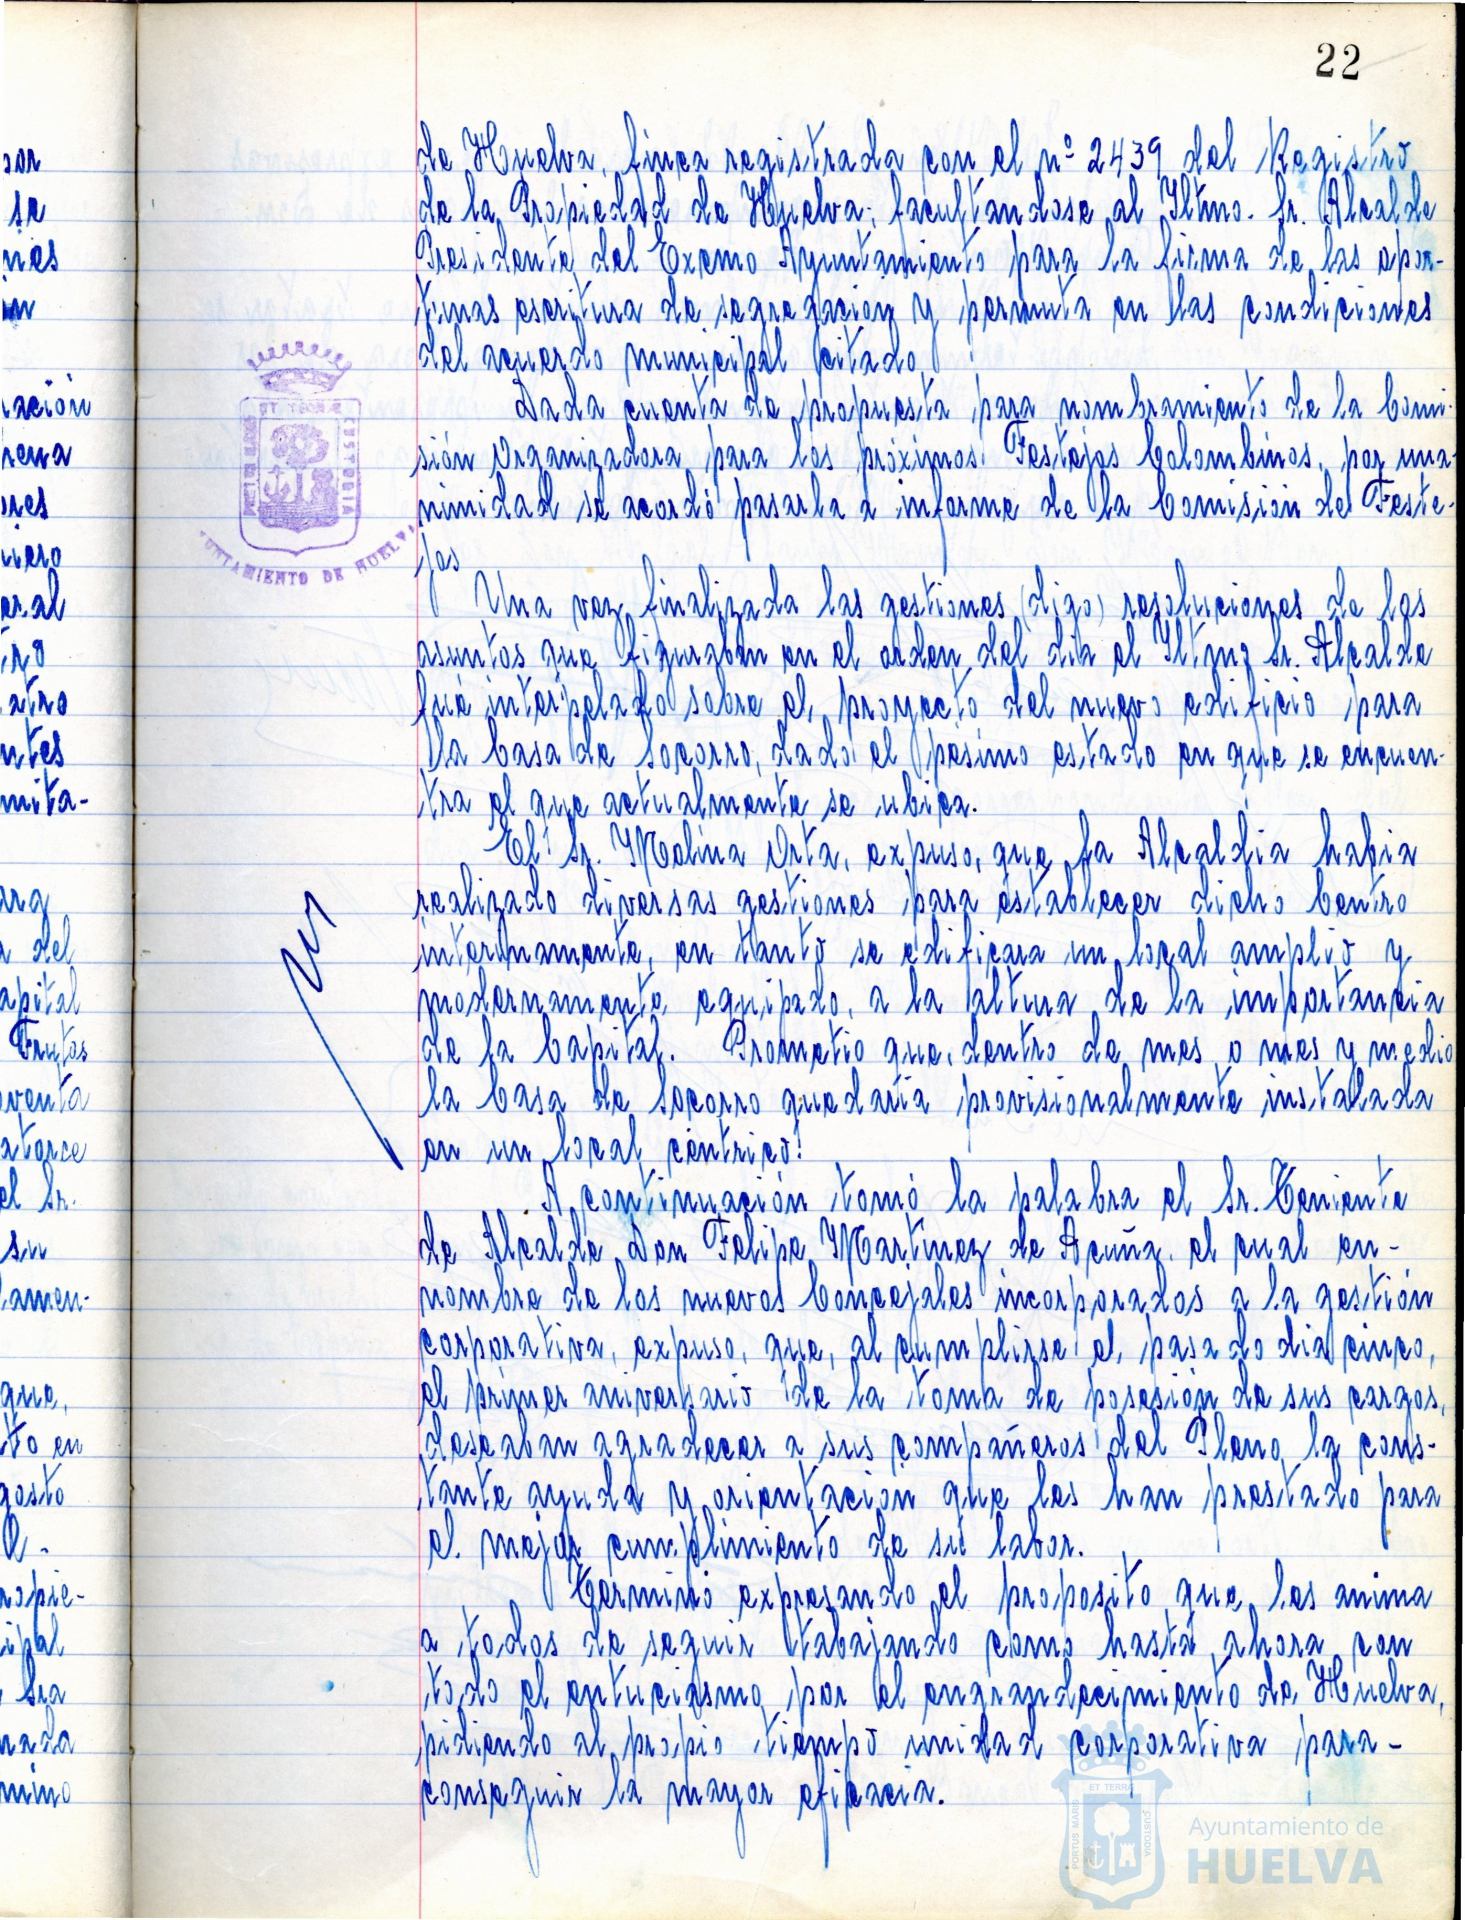 22
de Huelva, finca registrada con el nº 2439 del Registro
de la Propiedad de Huelva; facultandose al Iltmo. Sr. Alcalde
Presidente del Excmo Ayuntamiento para la firma de las opor-
tunas escritura de segregación y permuta en las condiciones
del acuerdo municipal citado.
Dada cuenta de propuesta para nombramiento de la Comi-
sión Organizadora para los próximos Festejos Colombinos, por una-
nimidad se acordó pasarla a informe de la Comisión de Feste-
jos
Una vez finalizada las gestiones (digo) resoluciones de los
asuntos que figuraban en el orden del dia el Iltmo Sr. Alcalde
fué interpelado sobre el proyecto del nuevo edificio para
la Casa de Socorro, dado el pésimo estado en que se encuen-
tra el que actualmente se ubica.
El Sr. Molina Orta, expuso, que la Alcaldia habia
realizado diversas gestiones para establecer dicho Centro
interinamente, en tanto se edificara un local amplio y
modernamente equipado, a la altura de la importancia
de la Capital. Prometio que, dentro de mes o mes y medio
la Casa de Socorro quedaria provisionalmente instalada
en un local céntrico.
A continuación tomó la palabra el Sr. Teniente
de Alcalde Don Felipe Martinez de Acuña, el cual en-
nombre de los nuevos Concejales incorporados a la gestión
corporativa, expuso, que, al cumplirse el pasado dia cinco,
el primer aniversario de la toma de posesión de sus cargos,
deseaban agradecer a sus compañeros del Pleno la cons-
tante ayuda y orientación que les han prestado para
el mejor cumplimiento de su labor.
Terminó expresando el proposito que les anima
a todos de seguir tabajando como hasta ahora con
todo el entuciasmo por el engrandecimiento de Huelva,
pidiendo al propio tiempo unidad corporativa para-
conseguir la mayor eficacia.
AYUNTAMIENTO DE HUELVA
sor
se
nes
ación
ores
eral
atro
ntes
mita-
del
apital
Frutas
venta
atorce
el Sr.
su
lamen-
que,
to en
gosto
ropie-
ipal
nada
mino
PORTUS MARIS
ET TERRA
CUSTODIA
Ayuntamiento de
HUELVA